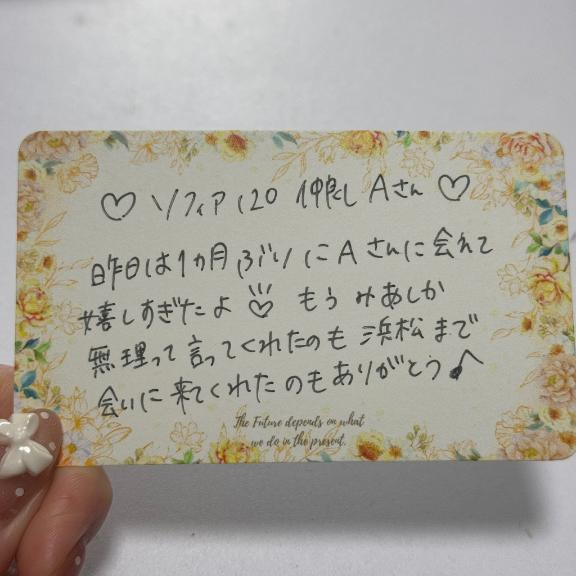 ♡ ソフィア 120 仲良し Aさん ♡
昨日は1ヵ月ぶりにAさんに会えて
嬉しすぎたよ♡ もう みあしか
無理って言ってくれたのも浜松まで
会いに来てくれたのもありがとう♪
The Future depends on what
we do in the present.